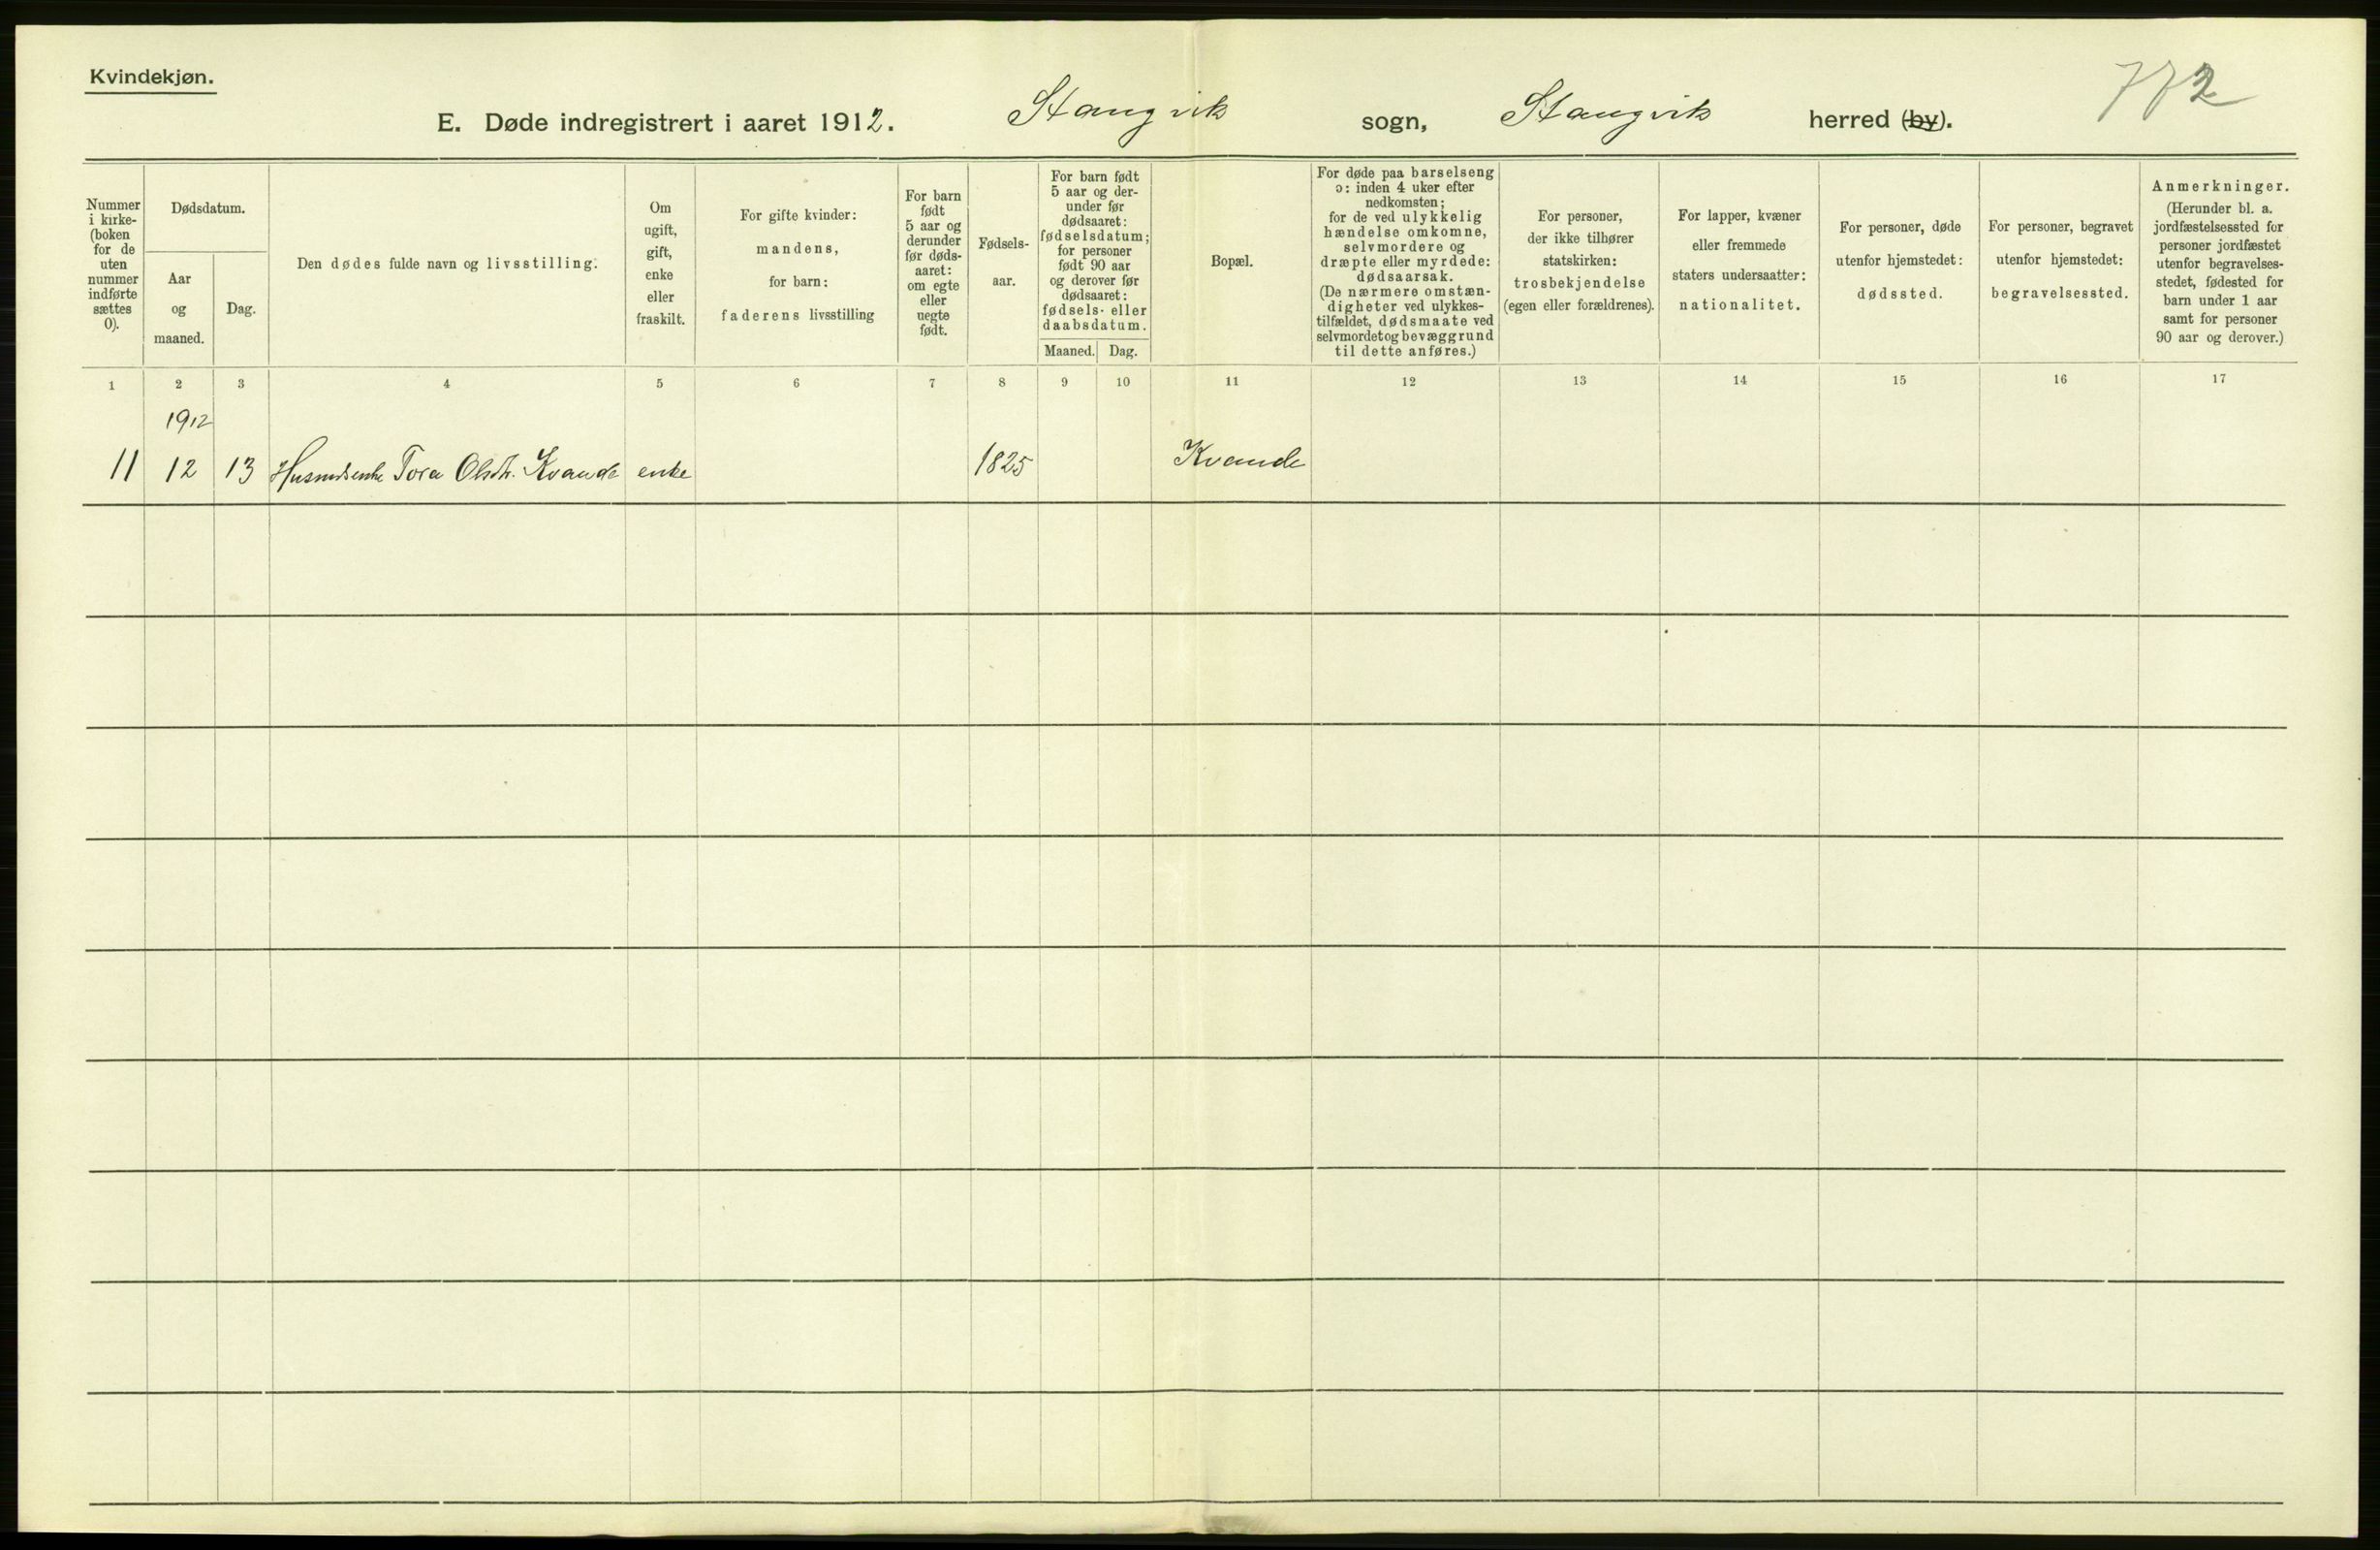 Kvindekjøn.
772
E. Døde indregistrert i aaret 1912. Stangvik sogn, Stangvik herred (by).
Nummer
i kirke-
(boken
for de
uten
nummer
indførte
sættes
0).
Dødsdatum.
Aar
og
maaned.
Dag.
Den dødes fulde navn og livsstilling.
Om
ugift,
gift,
enke
eller
fraskilt.
For gifte kvinder:
mandens,
for barn:
faderens livsstilling
For barn
født
5 aar og
derunder
før døds-
aaret:
om egte
eller
uegte
født.
Fødsels-
aar.
For barn født
5 aar og der-
under før
dødsaaret:
fødselsdatum;
for personer
født 90 aar
og derover før
dødsaaret:
fødsels- eller
daabsdatum.
Maaned.
Dag.
Bopæl.
For døde paa barselseng
ɔ: inden 4 uker efter
nedkomsten;
for de ved ulykkelig
hændelse omkomne,
selvmordere og
dræpte eller myrdede:
dødsaarsak.
(De nærmere omstæn-
digheter ved ulykkes-
tilfældet, dødsmaate ved
selvmordet og bevæggrund
til dette anføres.)
For personer,
der ikke tilhører
statskirken:
trosbekjendelse
(egen eller forældrenes).
For lapper, kvæner
eller fremmede
staters undersaatter:
nationalitet.
For personer, døde
utenfor hjemstedet:
dødssted.
For personer, begravet
utenfor hjemstedet:
begravelsessted.
Anmerkninger.
(Herunder bl. a.
jordfæstelsessted for
personer jordfæstet
utenfor begravelses-
stedet, fødested for
barn under 1 aar
samt for personer
90 aar og derover.)
1 2 3 4 5 6 7 8 9 10 11 12 13 14 15 16 17
1912
11 12 13 Husmdsenke Tora Olsdtr. Kvande enke 1825 Kvande